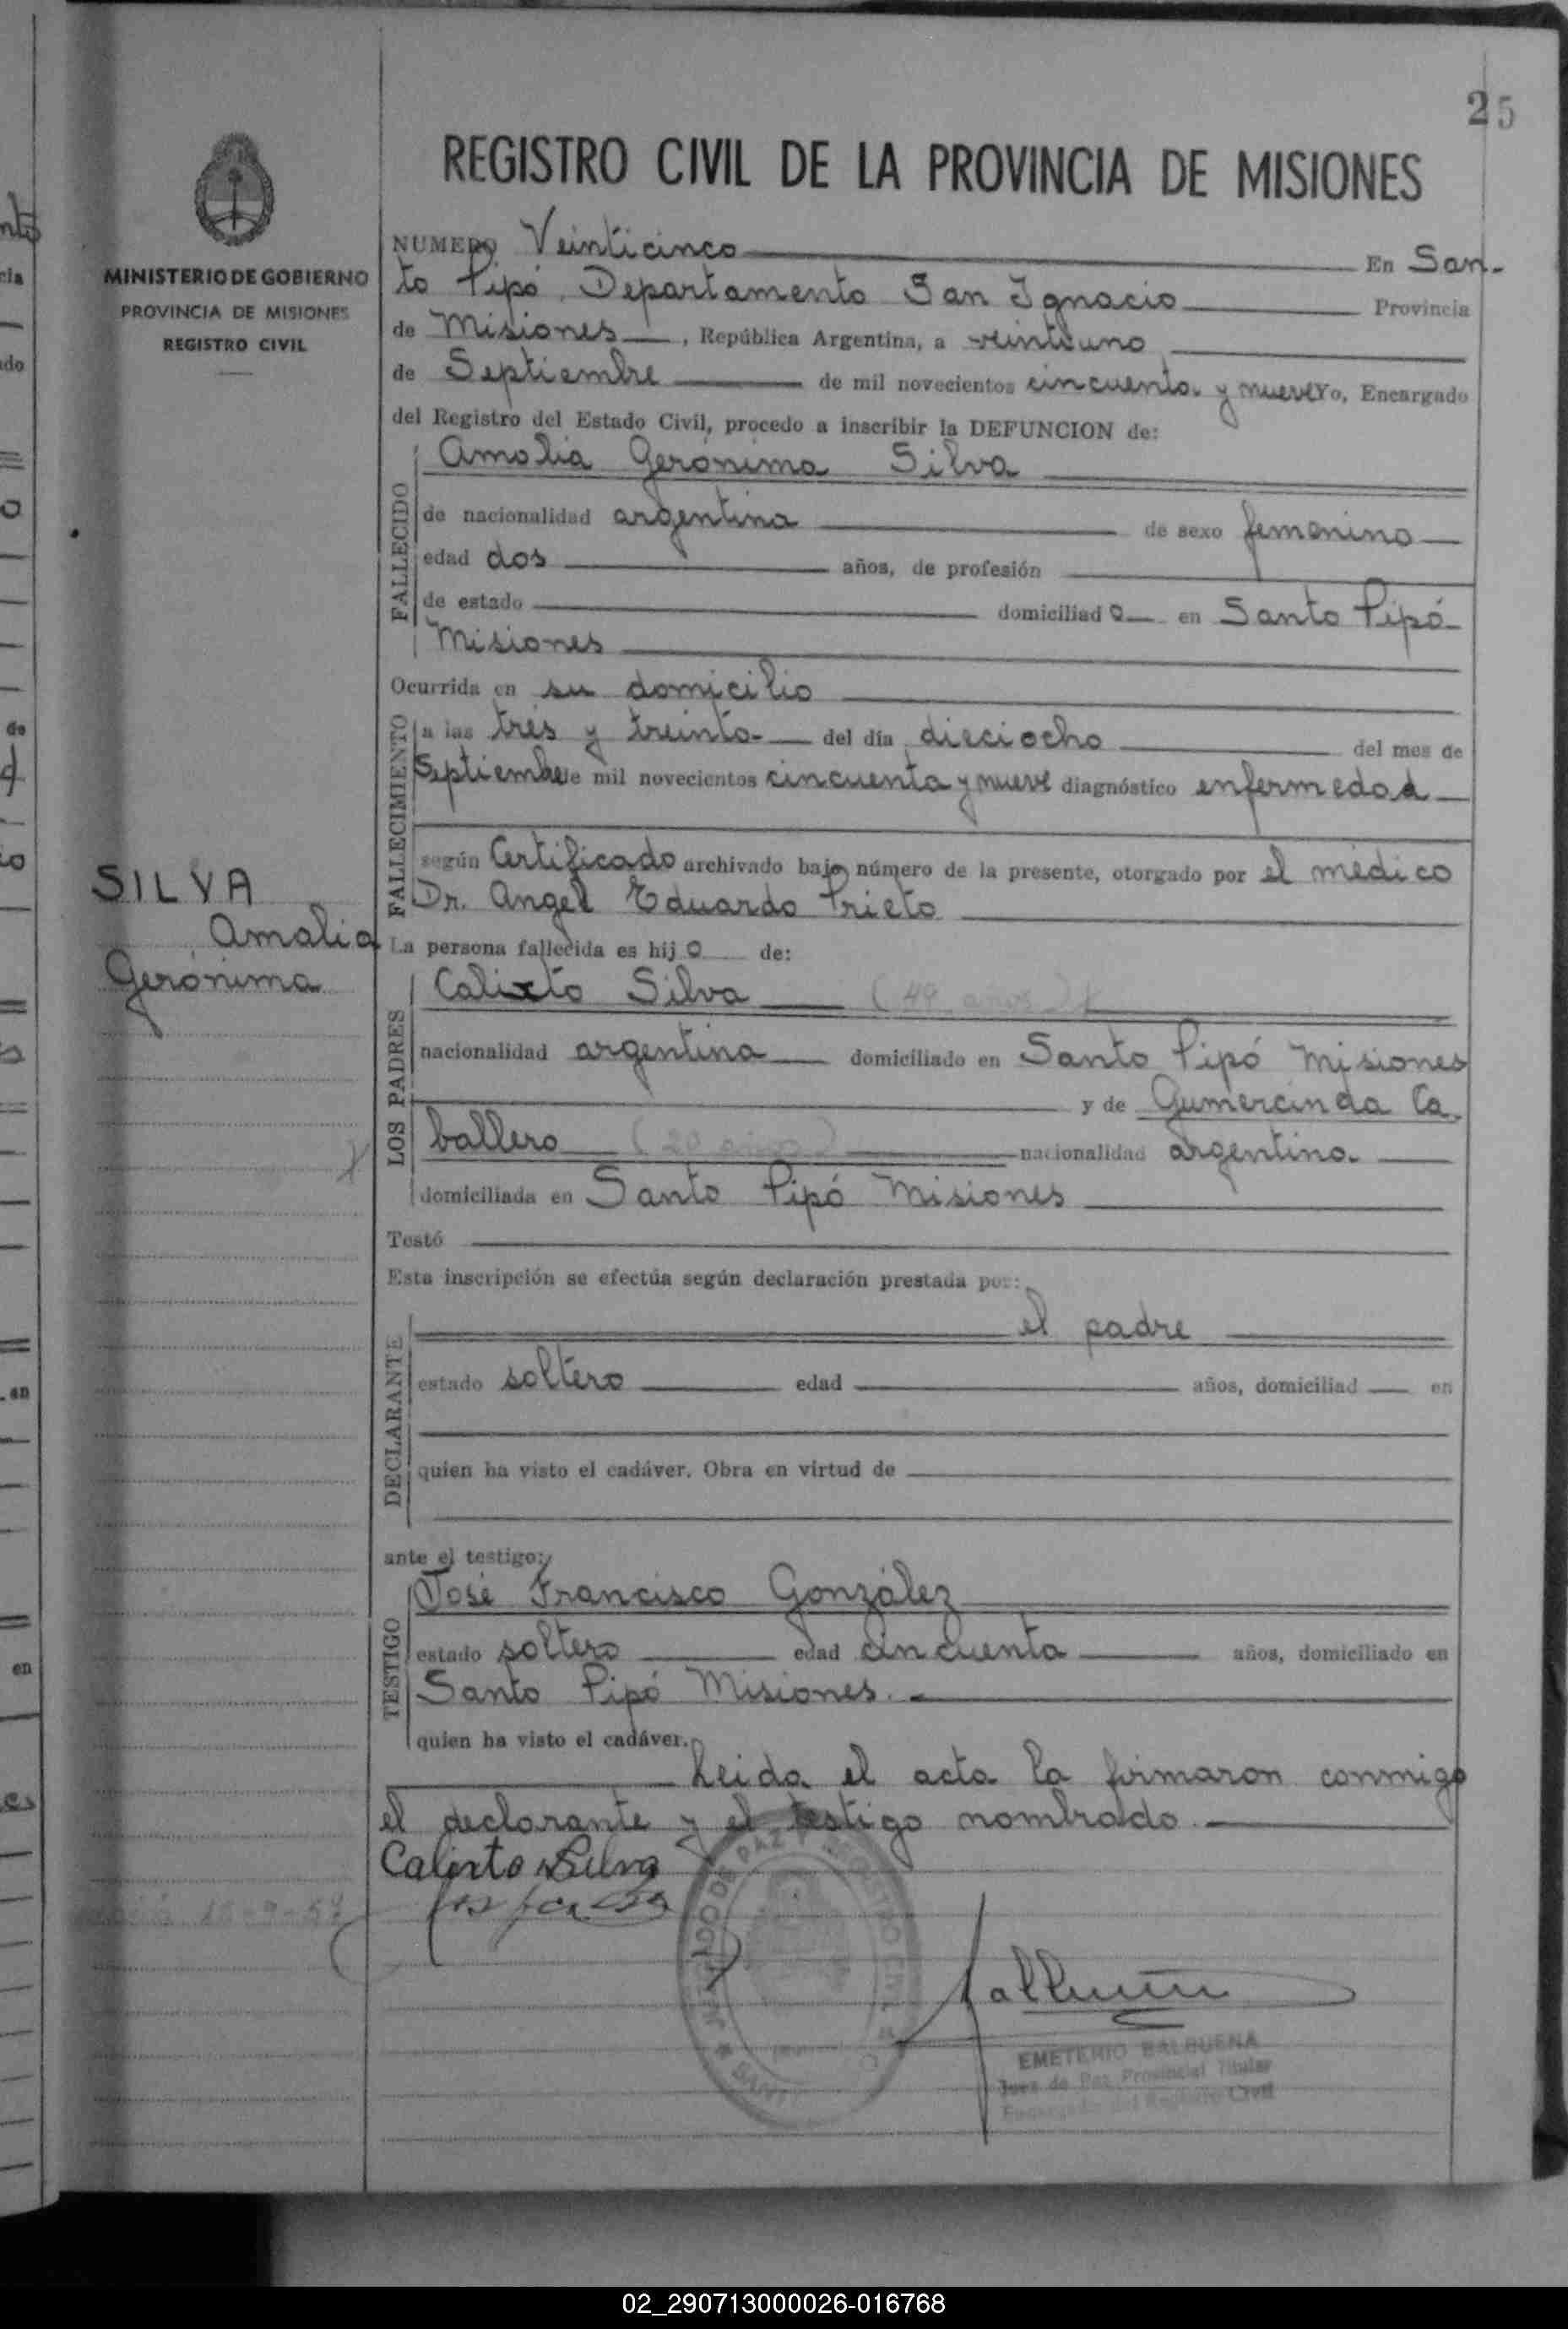 25
REGISTRO CIVIL DE LA PROVINCIA DE MISIONES
MINISTERIO DE GOBIERNO
PROVINCIA DE MISIONES
REGISTRO CIVIL
NUMERO Veinticinco En San-
to Pipó, Departamento San Ignacio Provincia
de Misiones, República Argentina, a veintiuno
de Septiembre de mil novecientos cincuenta y nueve Yo, Encargado
del Registro del Estado Civil, procedo a inscribir la DEFUNCION de:
FALLECIDO
Amalia Gerónima Silva
de nacionalidad argentina de sexo femenino
edad dos años, de profesión
de estado domiciliad a en Santo Pipó
Misiones
Ocurrida en su domicilio
FALLECIMIENTO
a las tres y treinta del día dieciocho del mes de
Septiembre de mil novecientos cincuenta y nueve diagnóstico enfermedad
según Certificado archivado bajo número de la presente, otorgado por el médico
Dr. Angel Eduardo Prieto
SILVA
Amalia
Gerónima
La persona fallecida es hij a de:
LOS PADRES
Calixto Silva (49 años)
nacionalidad argentina domiciliado en Santo Pipó Misiones
y de Gumercinda Ca
ballero (20 años) nacionalidad argentina
domiciliada en Santo Pipó Misiones
Testó
Esta inscripción se efectúa según declaración prestada por:
DECLARANTE
el padre
estado soltero edad años, domiciliad en
quien ha visto el cadáver. Obra en virtud de
ante el testigo:
TESTIGO
José Francisco González
estado soltero edad cincuenta años, domiciliado en
Santo Pipó Misiones.
quien ha visto el cadáver.
Leida el acta la firmaron conmigo
el declarante y el testigo nombrado.
Calixto Silva
JUZGADO DE PAZ Y REGISTRO CIVIL
EMETERIO BALBUENA
Juez de Paz Provincial Titular
Encargado del Registro Civil
02_290713000026-016768